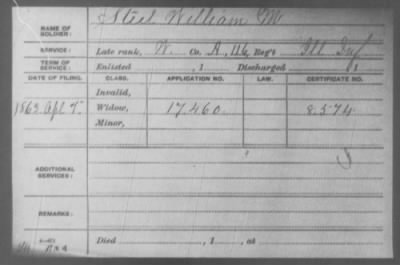 NAME OF SOLDIER: Steel William M
SERVICE: Late rank, Co. A, 116 Reg't Ill Inf
TERM OF SERVICE: Enlisted , 1 Discharged , 1
DATE OF FILING. CLASS. APPLICATION NO. LAW. CERTIFICATE NO.
Invalid,
1863 Apl 7. Widow, 17.460. 8.574
Minor,
ADDITIONAL SERVICES:
REMARKS:
Died , 1 , at